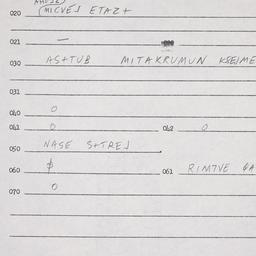 020 (MICVEJ ETAZ+
021 —
030 AS++UB MITAKRUMUN
031
040 0
041 0 042 0
050 NASE S++REJ
060 $ 061 RIM7VE
070 0